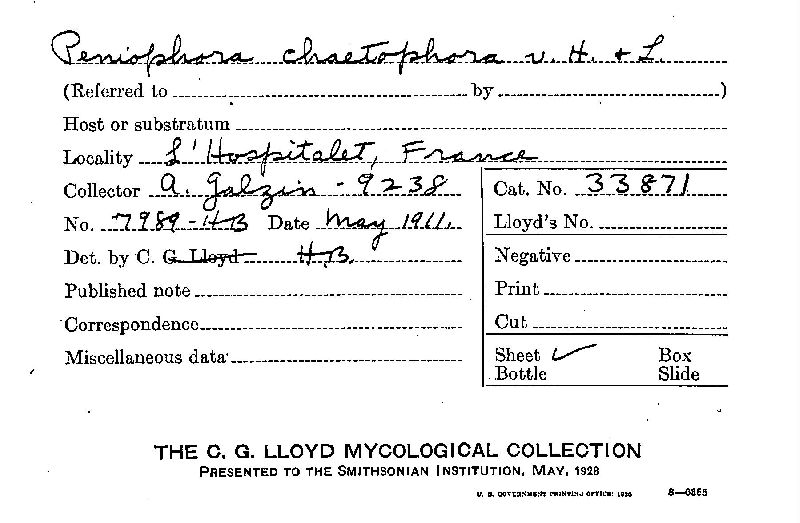 Peniophora chaetophora v. H. + L.
(Referred to by )
Host or substratum
Locality L'Hospitalet, France
Collector A. Galzin - 9238
Cat. No. 33871
No. 7989-HB Date May 1911.
Lloyd's No.
Det. by C. G. Lloyd HB.
Negative
Published note
Print
Correspondence
Cut
Miscellaneous data
Sheet ✓ Box
Bottle Slide
THE C. G. LLOYD MYCOLOGICAL COLLECTION
PRESENTED TO THE SMITHSONIAN INSTITUTION, MAY, 1928
U. S. GOVERNMENT PRINTING OFFICE: 1936 8—6865